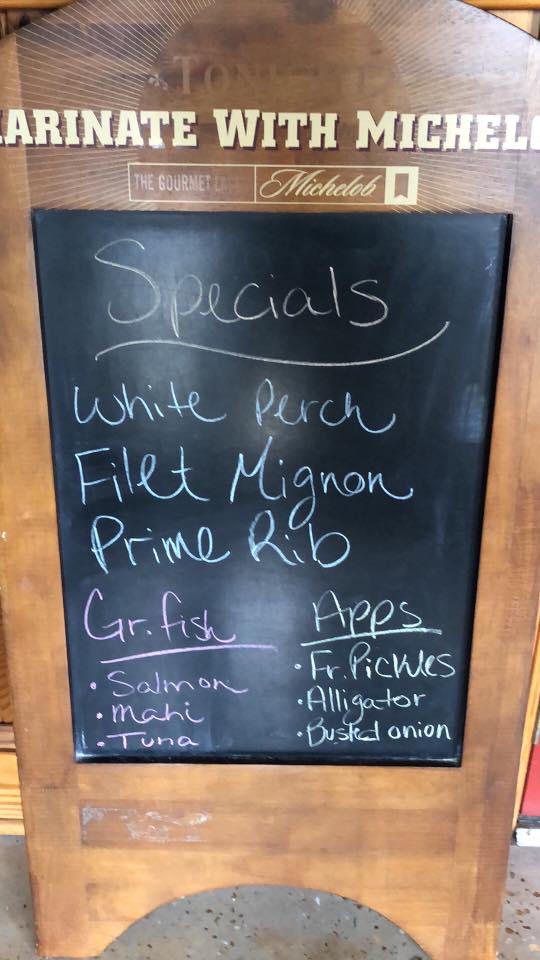 TON
ARINATE WITH MICHELO
THE GOURMET LA Michelob
Specials
White Perch
Filet Mignon
Prime Rib
Gr. fish
• Salmon
• Mahi
• Tuna
Apps
• Fr. Pickles
• Alligator
• Busted onion